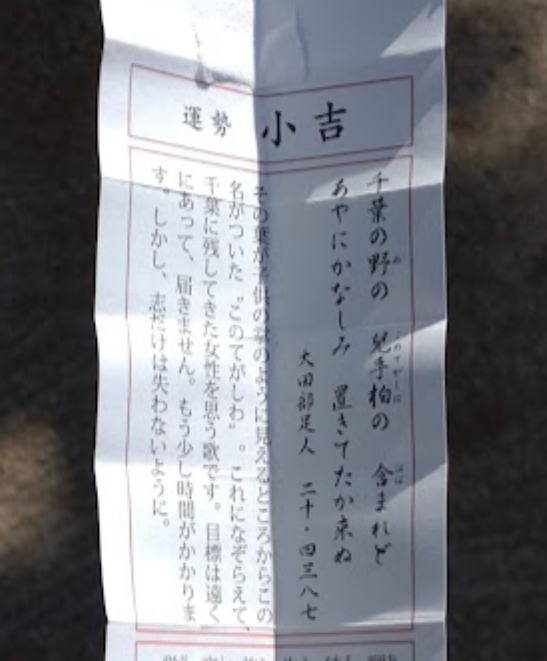 運勢 小吉
千葉の野の 兒手柏の 含まれど
あやにかなしみ 置きてたか来ぬ
大田部足人 二十・四三八七
その葉が子供の掌のように見えるところからこの
名がついた〝このてがしわ〟。これになぞらえて、
千葉に残してきた女性を思う歌です。目標は遠く
にあって、届きません。もう少し時間がかかりま
す。しかし、志だけは失わないように。